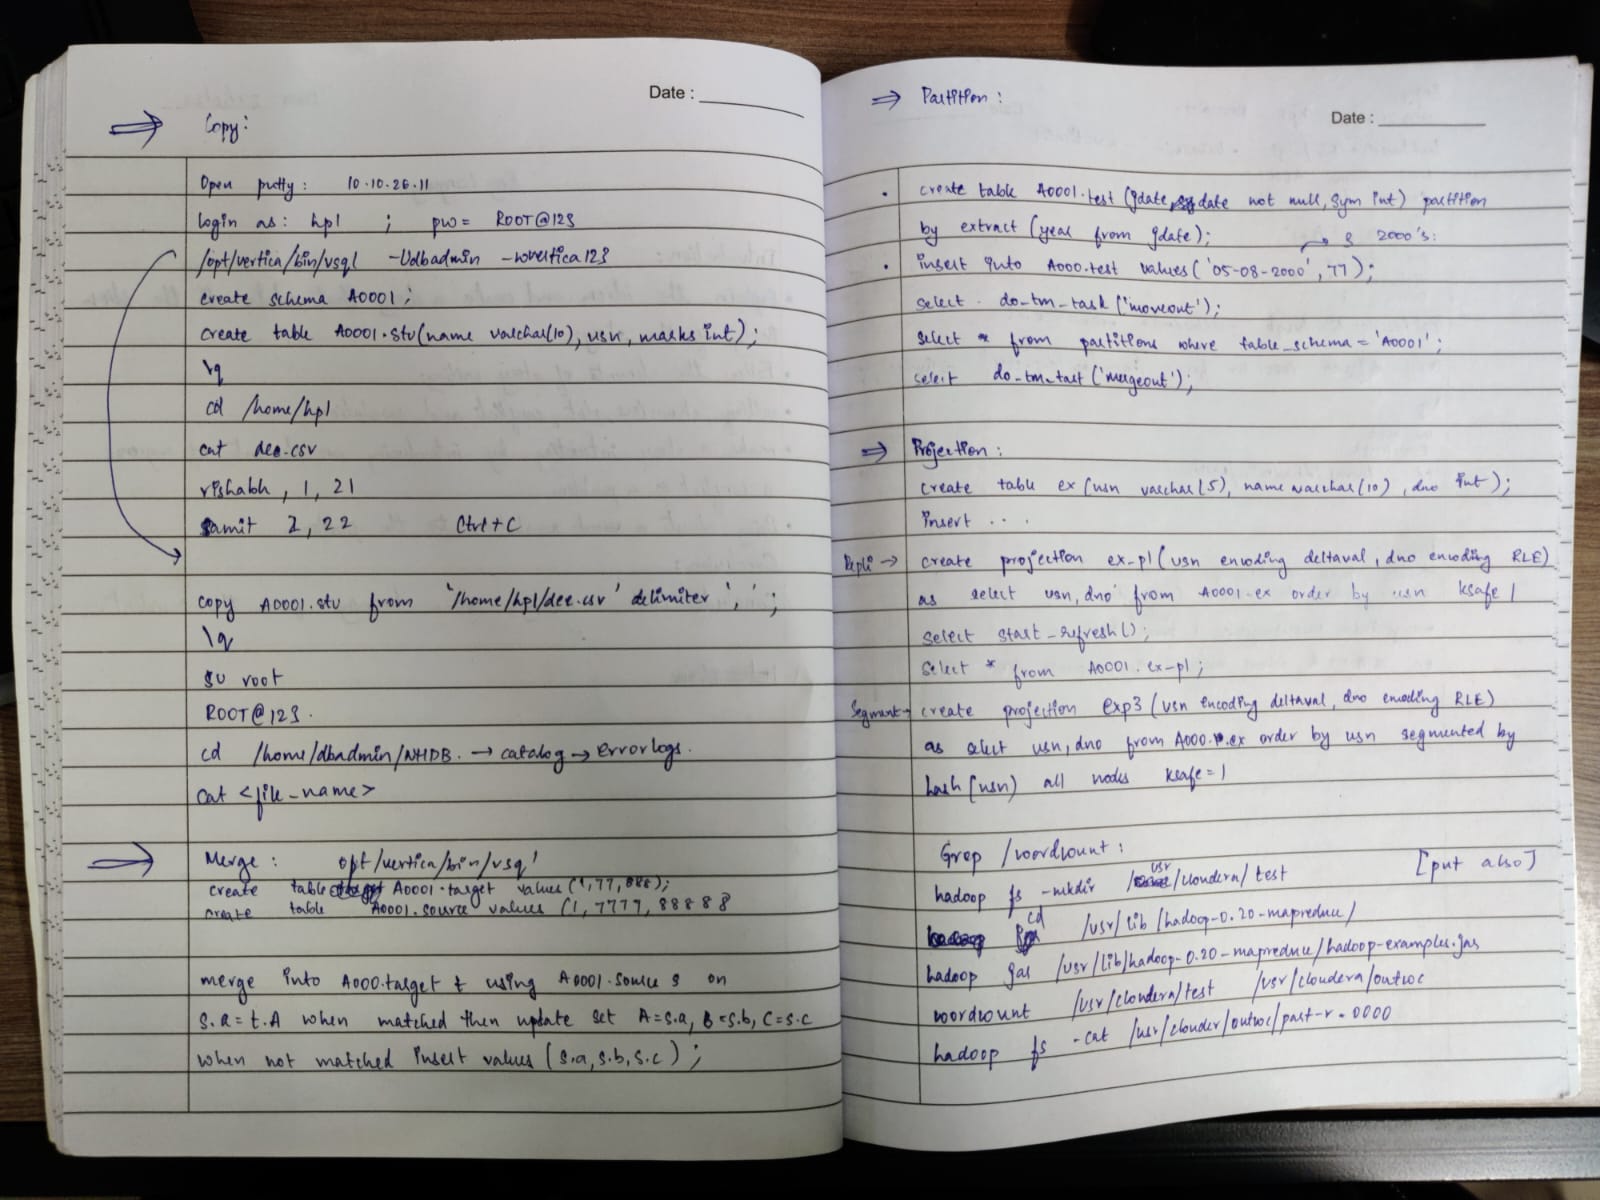 Date :
⇒ Copy:
Open putty: 10.10.26.11
login as: hp1 ; pw= ROOT@123
/opt/vertica/bin/vsql -Udbadmin -wvertica123
create schema A0001;
create table A0001.stu(name varchar(10), usn, marks int);
\q
cd /home/hp1
cat dee.csv
rishabh, 1, 21
samit 2, 22 Ctrl+C
copy A0001.stu from '/home/hp1/dee.csv' delimiter ',';
\q
su root
ROOT@123.
cd /home/dbadmin/NHDB. → catalog → Errorlogs.
cat <file-name>
⇒ Merge: opt/vertica/bin/vsql
create table A0001.target values (1,77,888);
create table A0001.source values (1,7777,88888
merge into A000.target t using A0001.source s on
s.a=t.A when matched then update set A=s.a, B=s.b, C=s.c
when not matched insert values (s.a,s.b,s.c);
⇒ Partition:
Date :
• create table A0001.test (gdate date not null, sym int) partition
by extract (year from gdate); → 3 2000's:
• insert into A000.test values('05-08-2000', 77);
select do-tm-task ('moveout');
select * from partitions where table_schema = 'A0001';
select do-tm-tast ('mergeout');
⇒ Projection:
create table ex (usn varchar(5), name varchar(10), dno int);
insert ...
Repli → create projection ex-p1 (usn encoding deltaval, dno encoding RLE)
as select usn, dno from A0001.ex order by usn ksafe 1
select start-refresh();
select * from A0001.ex-p1;
Segment → create projection exp3 (usn encoding deltaval, dno encoding RLE)
as select usn, dno from A000.ex order by usn segmented by
hash (usn) all nodes ksafe=1
Grep /wordcount: [put also]
hadoop fs -mkdir /usr/cloudera/test
cd /usr/lib/hadoop-0.20-mapreduce/
hadoop jar /usr/lib/hadoop-0.20-mapreduce/hadoop-examples.jar
wordcount /usr/cloudera/test /usr/cloudera/outwc
hadoop fs -cat /usr/clouder/outwc/part-r-0000